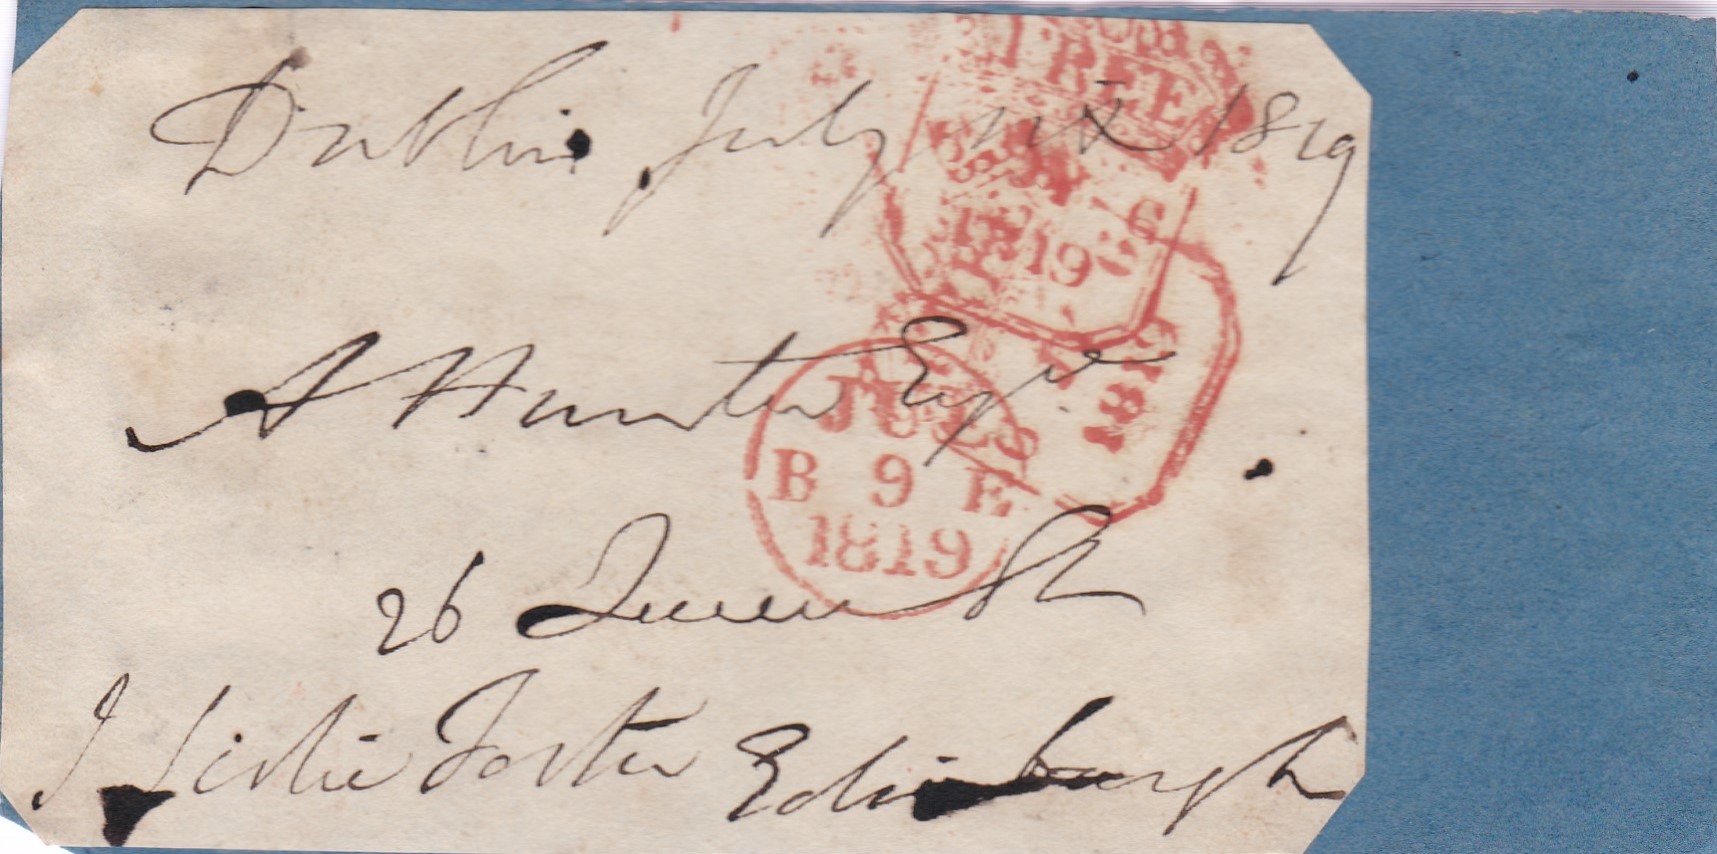 Dublin July six 1819
A Hunter Esqre
26 Queen St
J Leslie Foster Edinburgh
FREE
1819
1819
JUL
B 9 E
1819